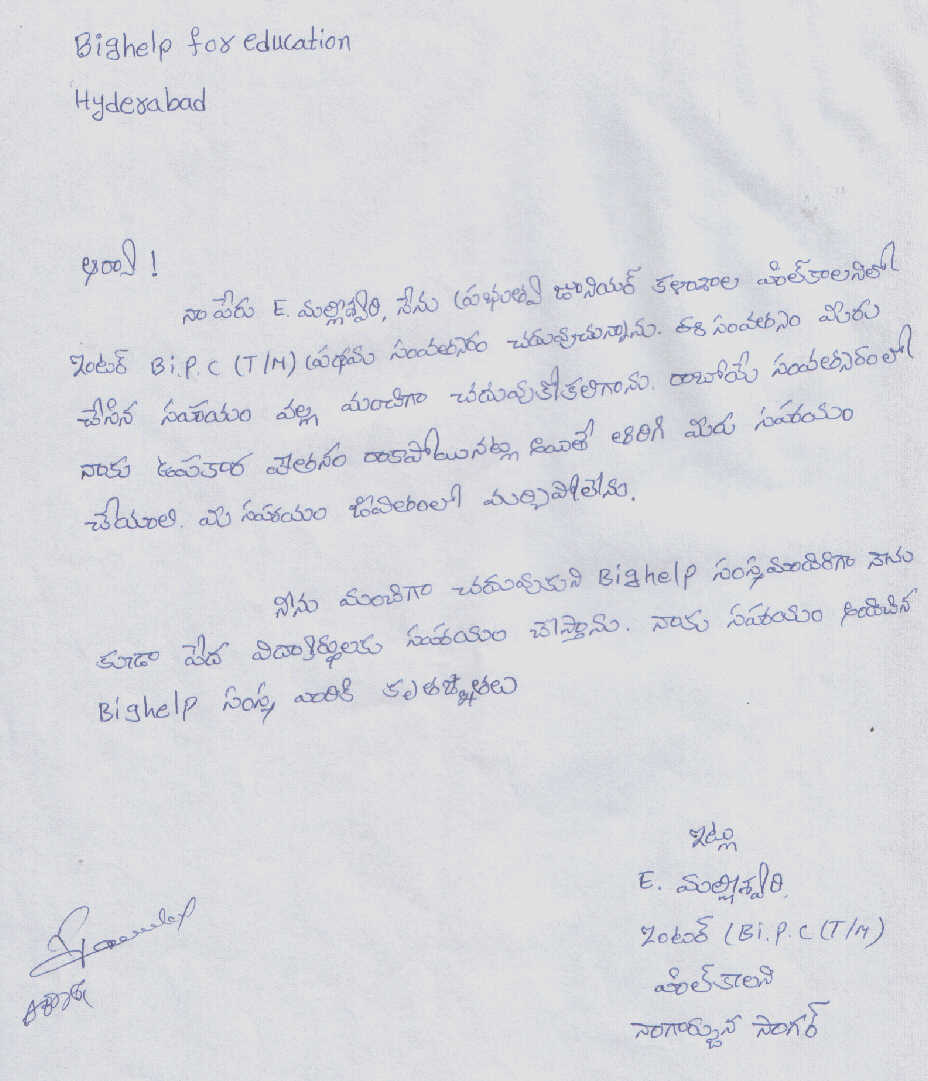 Bighelp for education
Hyderabad
ఆర్యా !
నా పేరు E. మల్లీశ్వరి, నేను ప్రభుత్వ జూనియర్ కళాశాల హిల్‌కాలనిలో
ఇంటర్ Bi.P.C (T/M) ప్రథమ సంవత్సరం చదువుచున్నాను. ఈ సంవత్సరం మీరు
చేసిన సహాయం వల్ల మంచిగా చదువుకోగలిగాను. రాబోయే సంవత్సరంలో
నాకు ఉపకార వేతనం రాకపోయినట్లు అయితే తిరిగి మీరు సహాయం
చేయాలి. మీ సహాయం జీవితంలో మర్చిపోలేను.
నేను మంచిగా చదువుకుని Bighelp సంస్థమాదిరిగా నేను
కూడా పేద విద్యార్థులకు సహాయం చేస్తాను. నాకు సహాయం అందించిన
Bighelp సంస్థ వారికి కృతజ్ఞతలు
ఇట్లు
E. మల్లీశ్వరి
ఇంటర్ (Bi.P.C (T/M)
హిల్‌కాలని
నాగార్జున సాగర్